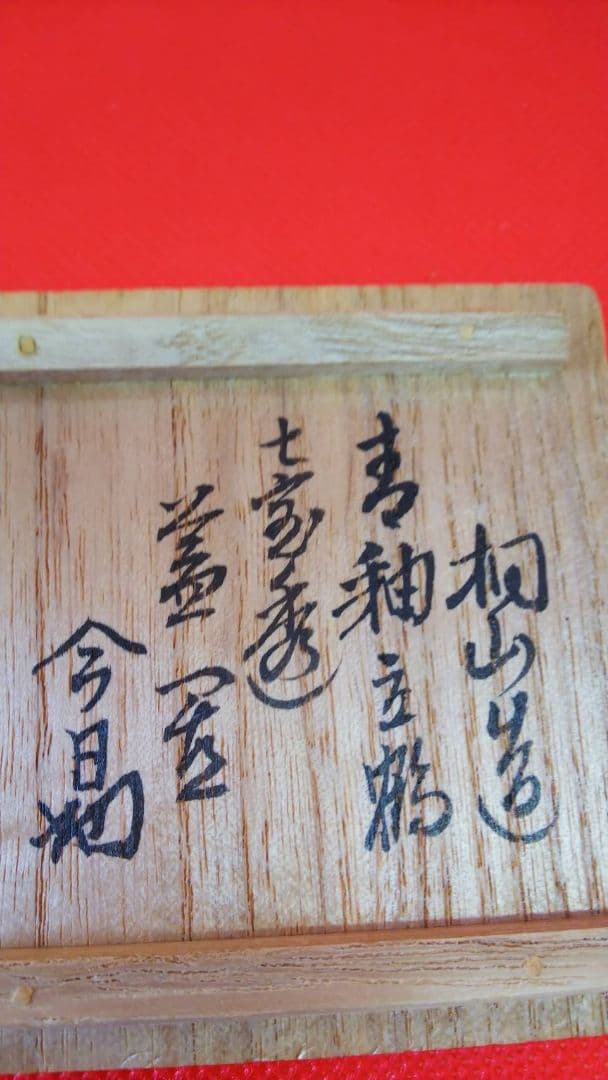 桐山造
青釉立鶴
七宝透
蓋置
今日